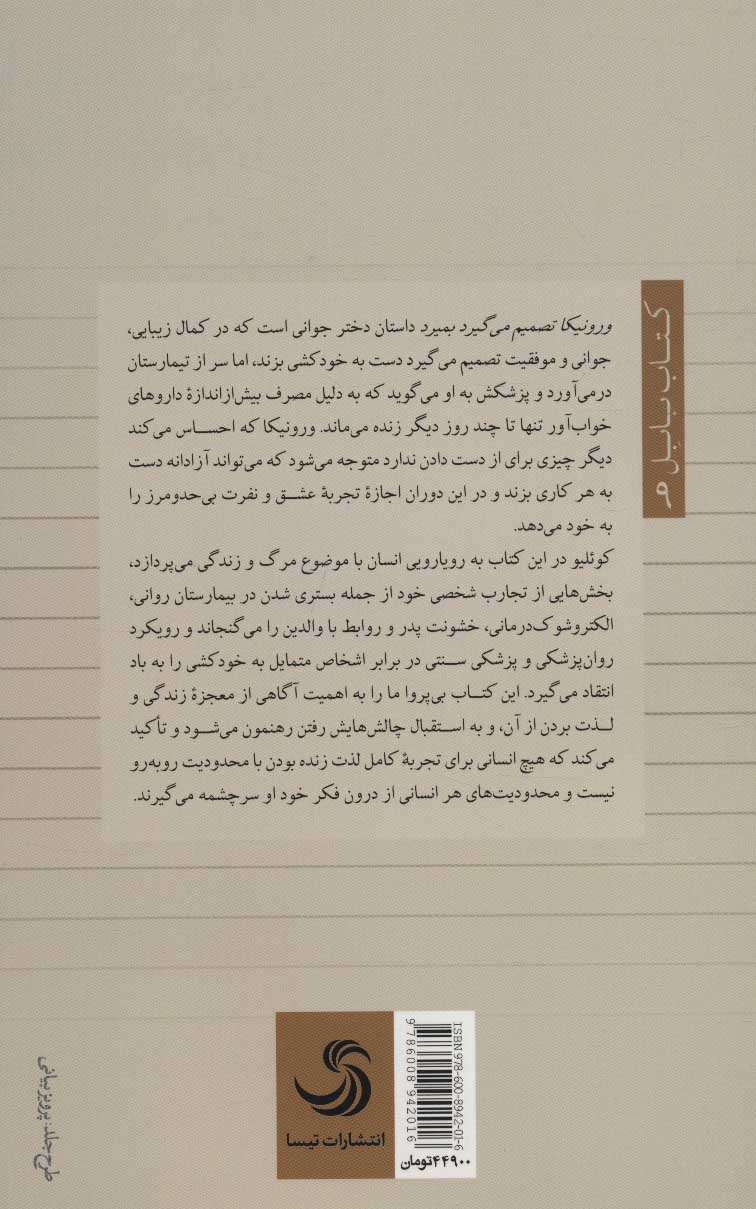 کتاب بابل
ورونیکا تصمیم می‌گیرد بمیرد داستان دختر جوانی است که در کمال زیبایی،
جوانی و موفقیت تصمیم می‌گیرد دست به خودکشی بزند، اما سر از تیمارستان
درمی‌آورد و پزشکش به او می‌گوید که به دلیل مصرف بیش‌ازاندازهٔ داروهای
خواب‌آور تنها تا چند روز دیگر زنده می‌ماند. ورونیکا که احساس می‌کند
دیگر چیزی برای از دست دادن ندارد متوجه می‌شود که می‌تواند آزادانه دست
به هر کاری بزند و در این دوران اجازهٔ تجربهٔ عشق و نفرت بی‌حدومرز را
به خود می‌دهد.
کوئلیو در این کتاب به رویارویی انسان با موضوع مرگ و زندگی می‌پردازد،
بخش‌هایی از تجارب شخصی خود از جمله بستری شدن در بیمارستان روانی،
الکتروشوک‌درمانی، خشونت پدر و روابط با والدین را می‌گنجاند و رویکرد
روان‌پزشکی و پزشکی سنتی در برابر اشخاص متمایل به خودکشی را به باد
انتقاد می‌گیرد. این کتاب بی‌پروا ما را به اهمیت آگاهی از معجزهٔ زندگی و
لذت بردن از آن، و به استقبال چالش‌هایش رفتن رهنمون می‌شود و تأکید
می‌کند که هیچ انسانی برای تجربهٔ کامل لذت زنده بودن با محدودیت روبه‌رو
نیست و محدودیت‌های هر انسانی از درون فکر خود او سرچشمه می‌گیرند.
ISBN 978-600-8942-01-6
9 786008 942016
۴۴۹۰۰تومان
انتشارات تیسا
طرح جلد: پرویز بیانی